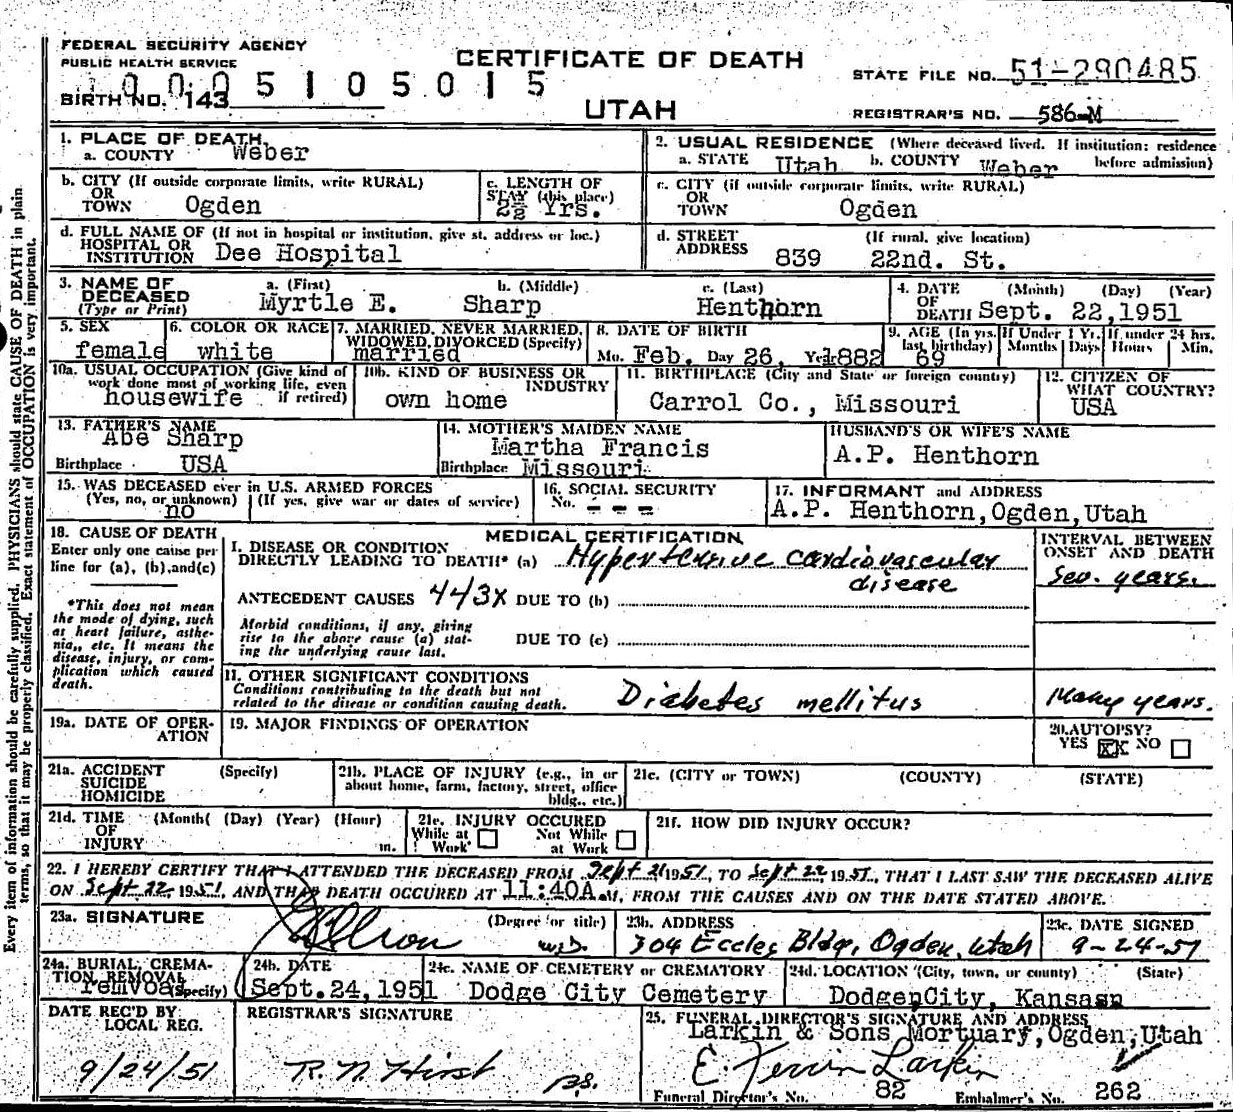 FEDERAL SECURITY AGENCY
PUBLIC HEALTH SERVICE
CERTIFICATE OF DEATH
STATE FILE NO. 51-290485
1 0 0 0 5 1 0 5 0 1 5
BIRTH NO. 143
UTAH
REGISTRAR'S NO. 586-M
1. PLACE OF DEATH
a. COUNTY Weber
2. USUAL RESIDENCE (Where deceased lived. If institution: residence before admission)
a. STATE Utah b. COUNTY Weber
b. CITY (If outside corporate limits, write RURAL)
OR
TOWN Ogden
c. LENGTH OF
STAY (this place)
Yrs.
c. CITY (if outside corporate limits, write RURAL)
OR
TOWN Ogden
d. FULL NAME OF (If not in hospital or institution, give st. address or loc.)
HOSPITAL OR
INSTITUTION Dee Hospital
d. STREET (If rural, give location)
ADDRESS 839 22nd. St.
3. NAME OF DECEASED
(Type or Print)
a. (First) b. (Middle) c. (Last)
Myrtle E. Sharp Henthorn
4. DATE OF DEATH (Month) (Day) (Year)
Sept. 22,1951
5. SEX
female
6. COLOR OR RACE
white
7. MARRIED, NEVER MARRIED,
WIDOWED, DIVORCED (Specify)
married
8. DATE OF BIRTH
Mo. Feb. Day 26, Yr. 1882
9. AGE (In yrs. last birthday)
69
If Under 1 Yr.
Months Days
If under 24 hrs.
Hours Min.
10a. USUAL OCCUPATION (Give kind of
work done most of working life, even
if retired)
housewife
10b. KIND OF BUSINESS OR
INDUSTRY
own home
11. BIRTHPLACE (City and State or foreign country)
Carrol Co., Missouri
12. CITIZEN OF
WHAT COUNTRY?
USA
13. FATHER'S NAME
Abe Sharp
Birthplace USA
14. MOTHER'S MAIDEN NAME
Martha Francis
Birthplace Missouri
HUSBAND'S OR WIFE'S NAME
A.P. Henthorn
15. WAS DECEASED ever in U.S. ARMED FORCES
(Yes, no, or unknown) (If yes, give war or dates of service)
no
16. SOCIAL SECURITY
No. - - -
17. INFORMANT and ADDRESS
A.P. Henthorn,Ogden,Utah
18. CAUSE OF DEATH
Enter only one cause per
line for (a), (b),and(c)
*This does not mean
the mode of dying, such
as heart failure, asthe-
nia,, etc. It means the
disease, injury, or com-
plication which caused
death.
MEDICAL CERTIFICATION
I. DISEASE OR CONDITION
DIRECTLY LEADING TO DEATH* (a) Hypertensive cardiovascular
disease
INTERVAL BETWEEN
ONSET AND DEATH
Sev. years.
ANTECEDENT CAUSES 443X DUE TO (b)
Morbid conditions, if any, giving
rise to the above cause (a) stat-
ing the underlying cause last.
DUE TO (c)
II. OTHER SIGNIFICANT CONDITIONS
Conditions contributing to the death but not
related to the disease or condition causing death.
Diabetes mellitus
Many years.
19a. DATE OF OPER-
ATION
19. MAJOR FINDINGS OF OPERATION
20.AUTOPSY?
YES XX NO
21a. ACCIDENT (Specify)
SUICIDE
HOMICIDE
21b. PLACE OF INJURY (e.g., in or
about home, farm, factory, street, office
bldg., etc.)
21c. (CITY or TOWN) (COUNTY) (STATE)
21d. TIME (Month( (Day) (Year) (Hour)
OF
INJURY m.
21e. INJURY OCCURED
While at Work Not While at Work
21f. HOW DID INJURY OCCUR?
22. I HEREBY CERTIFY THAT I ATTENDED THE DECEASED FROM Sept 21 1951, TO Sept 22 1951, THAT I LAST SAW THE DECEASED ALIVE
ON Sept 22 1951, AND THAT DEATH OCCURED AT 11:40A.M, FROM THE CAUSES AND ON THE DATE STATED ABOVE.
23a. SIGNATURE (Degree or title)
M.D.
23b. ADDRESS
304 Eccles Bldg, Ogden, Utah
23c. DATE SIGNED
9-24-51
24a. BURIAL, CREMA-
TION REMOVAL
(Specify)
removal
24b. DATE
Sept.24,1951
24c. NAME OF CEMETERY or CREMATORY
Dodge City Cemetery
24d. LOCATION (City, town, or county) (State)
Dodge City, Kansas
DATE REC'D BY
LOCAL REG.
9/24/51
REGISTRAR'S SIGNATURE
R. N. Hirst
25. FUNERAL DIRECTOR'S SIGNATURE AND ADDRESS
Larkin & Sons Mortuary,Ogden,Utah
Larkin
Funeral Director's No. 82 Embalmer's No. 262
Every item of information should be carefully supplied. PHYSICIANS should state CAUSE OF DEATH in plain
terms, so that it may be properly classified. Exact statement of OCCUPATION is very important.